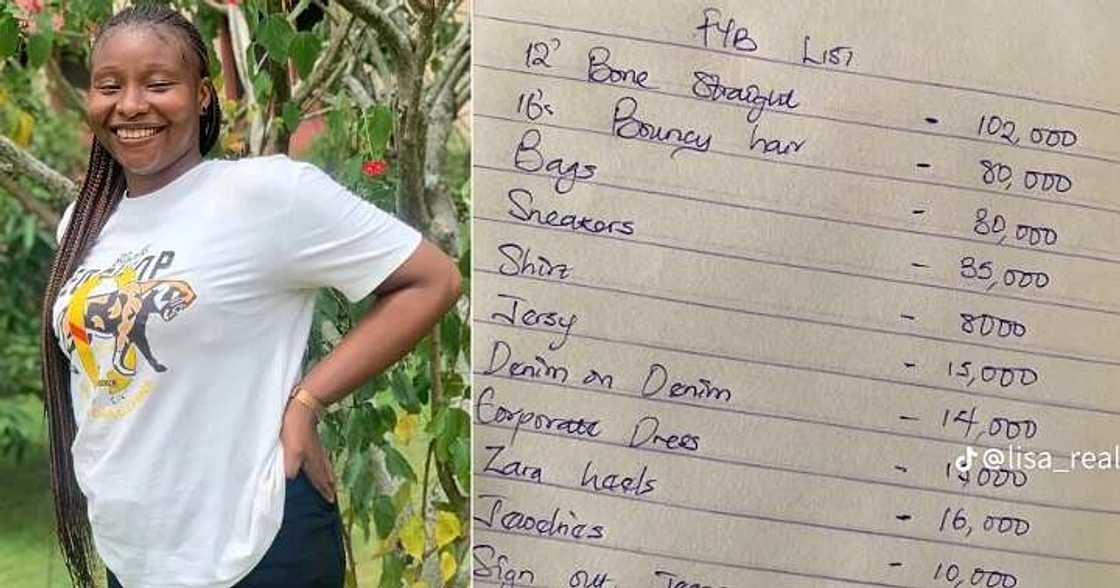 FYB LIST
12" Bone Straight - 102,000
16's Bouncy hair - 80,000
Bags - 30,000
Sneakers - 35,000
Shirt - 8000
Jersy - 15,000
Denim on Denim - 14,000
Corporate Dress -
Zara heels - 16,000
Jewelries - 10,000
Sign out
@lisa_real